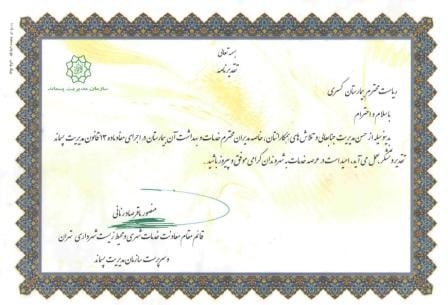 بسمه تعالی
تقدیرنامه
سازمان مدیریت پسماند
ریاست محترم بیمارستان کسری
با سلام و احترام
بدینوسیله از حسن مدیریت جنابعالی و تلاش های همکارانتان، خاصه مدیران محترم خدمات و بهداشت آن بیمارستان در اجرای مفاد ماده ۱۳ قانون مدیریت پسماند
تقدیر و تشکر بعمل می آید. امید است در عرصه خدمات به شهروندان گرامی موفق و پیروز باشید.
منصور باقر صاد رنانی
قائم مقام معاونت خدمات شهری و محیط زیست شهرداری تهران
و سرپرست سازمان مدیریت پسماند